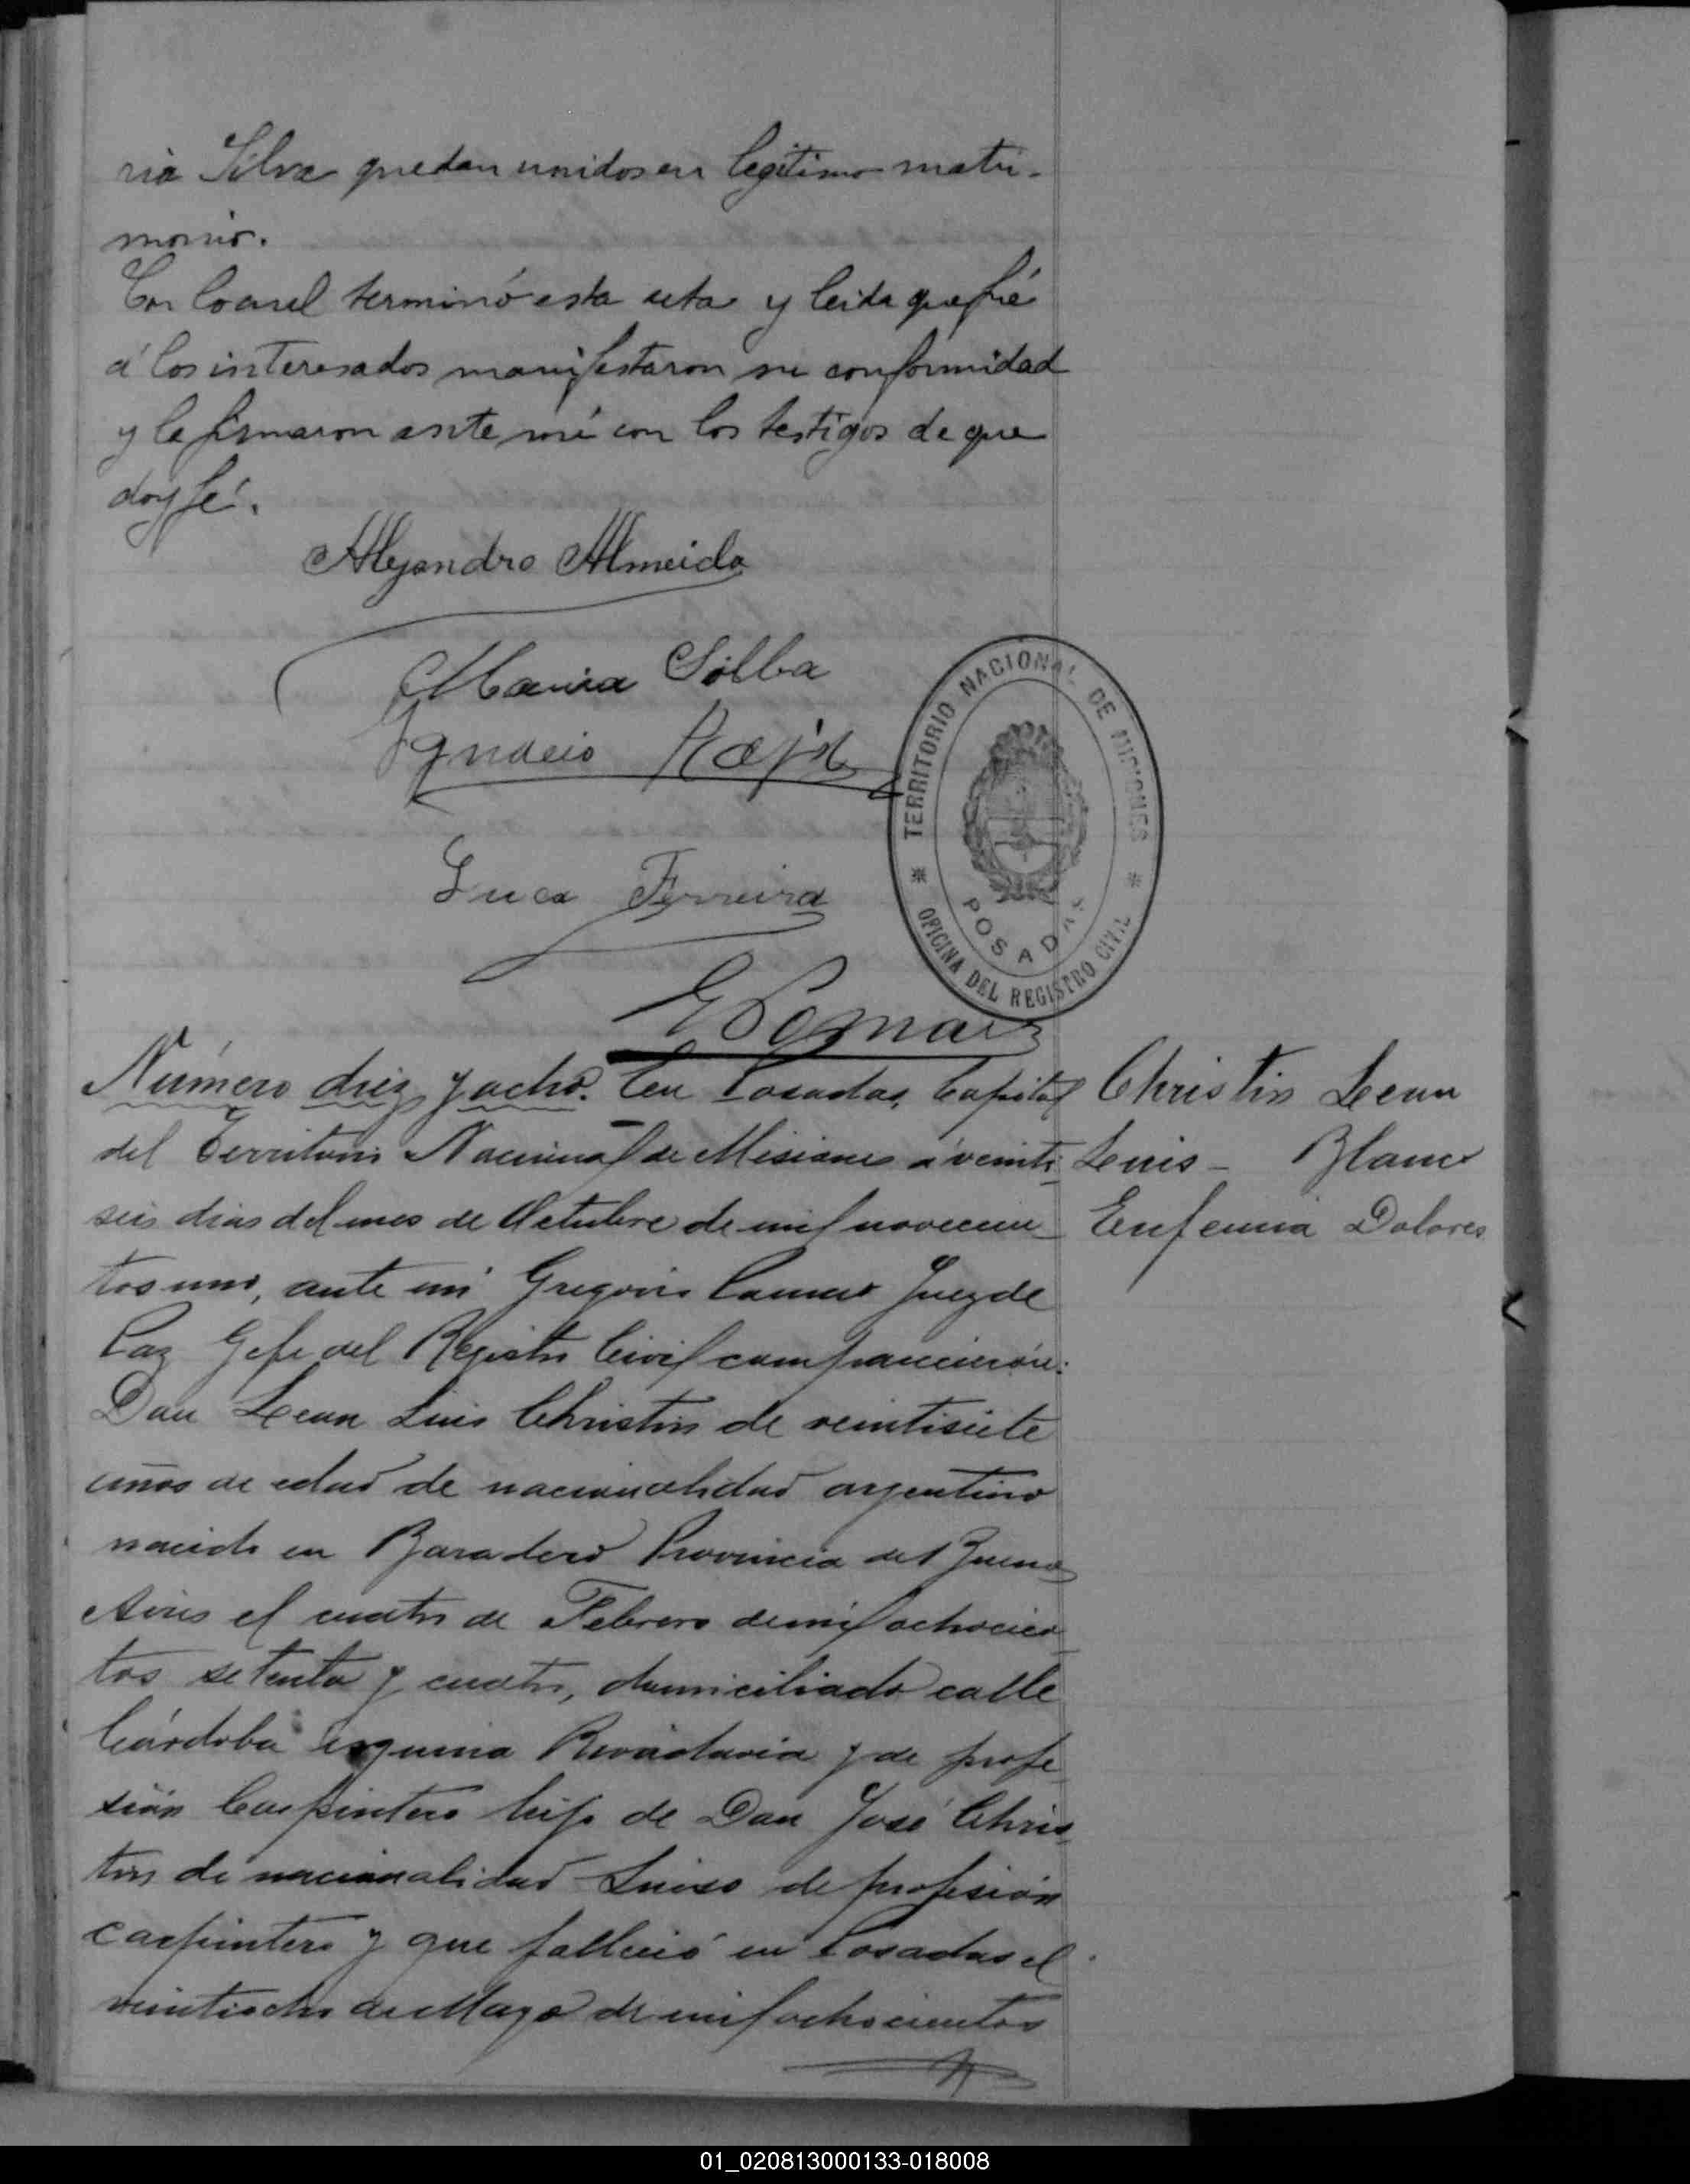 ria Silva quedan unidos en legítimo matri-
monio.
Con lo cual terminó esta acta y leida que fué
á los interesados manifestaron su conformidad
y la firmaron ante mí con los testigos de que
doy fé.
Alejandro Almeida
Maria Silba
Ignacio
Luca Ferreira
TERRITORIO NACIONAL DE MICIONES
POSADAS
OFICINA DEL REGISTRO CIVIL
Número diez y ocho. En Posadas, Capital
del Territorio Nacional de Misiones a veinti
seis dias del mes de Octubre de mil novecien
tos uno, ante mi Gregorio Juez de
Paz Gefe del Registro Civil comparecieron:
Don Lean Luis Christin de veintisiete
años de edad de nacionalidad argentino
nacido en Baradero Provincia de Buenos
Aires el cuatro de Febrero de mil ochocien
tos setenta y cuatro, domiciliado calle
Córdoba esquina Rivadavia y de profe
sión Carpintero hijo de Don José Chris
tin de nacionalidad Suizo de profesión
carpintero y que falleció en Posadas el
veintiocho de Mayo de mil ochocientos
Christin Lean
Luis - Blanc
Eufemia Dolores
01_020813000133-018008